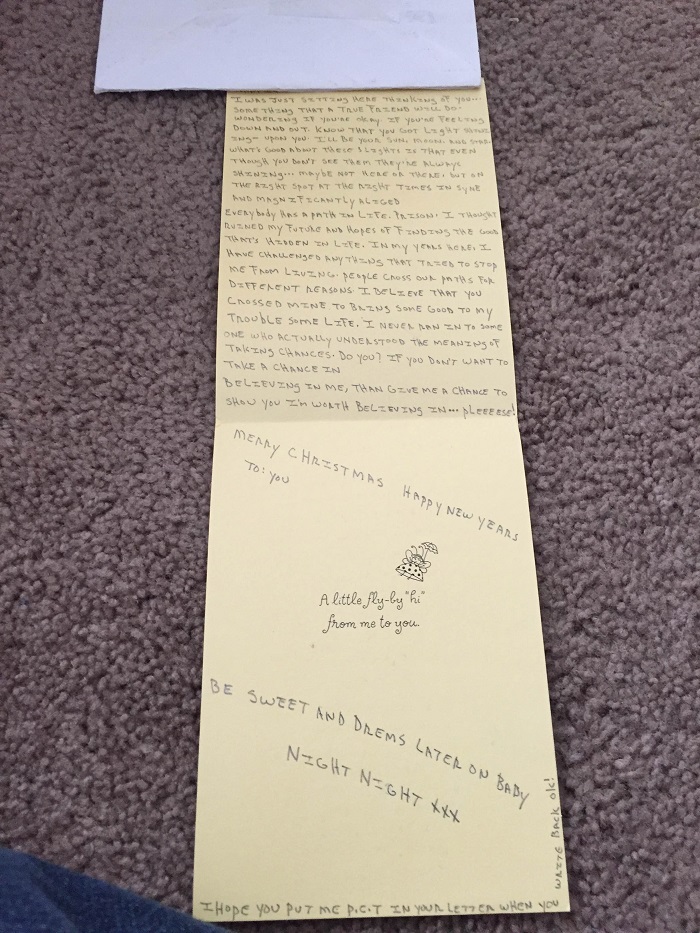 I WAS JUST SITTING HERE THINKING OF YOU...
SOMETHING THAT A TRUE FRIEND WILL DO.
WONDERING IF YOU'RE OKAY. IF YOU'RE FEELING
DOWN AND OUT. KNOW THAT YOU GOT LIGHT SHIN
ING- UPON YOU. I'LL BE YOUR SUN, MOON, AND STAR.
WHAT'S GOOD ABOUT THESE 3 LIGHTS IS THAT EVEN
THOUGH YOU DON'T SEE THEM THEY'RE ALWAYS
SHINING... MAYBE NOT HERE OR THERE, BUT ON
THE RIGHT SPOT AT THE RIGHT TIMES IN SYNE
AND MAGNIFICANTLY ALIGED
EVERYBODY HAS A PATH IN LIFE. PRISON. I THOUGHT
RUINED MY FUTURE AND HOPES OF FINDING THE GOOD
THAT'S HIDDEN IN LIFE. IN MY YEARS HERE, I
HAVE CHALLENGED ANYTHING THAT TRIED TO STOP
ME FROM LIVING. PEOPLE CROSS OUR PATHS FOR
DIFFERENT REASONS. I BELIEVE THAT YOU
CROSSED MINE TO BRING SOME GOOD TO MY
TROUBLE SOME LIFE. I NEVER RAN IN TO SOME
ONE WHO ACTUALLY UNDERSTOOD THE MEANING OF
TAKING CHANCES. DO YOU? IF YOU DON'T WANT TO
TAKE A CHANCE IN
BELIEVING IN ME, THAN GIVE ME A CHANCE TO
SHOW YOU I'M WORTH BELIEVING IN... PLEEEESE!
MERRY CHRISTMAS HAPPY NEW YEARS
TO: YOU
A little fly-by "hi"
from me to you.
BE SWEET AND DREMS LATER ON BABY
NIGHT NIGHT XXX
I HOPE YOU PUT ME P.C.T IN YOUR LETTER WHEN YOU
WRITE BACK OK!